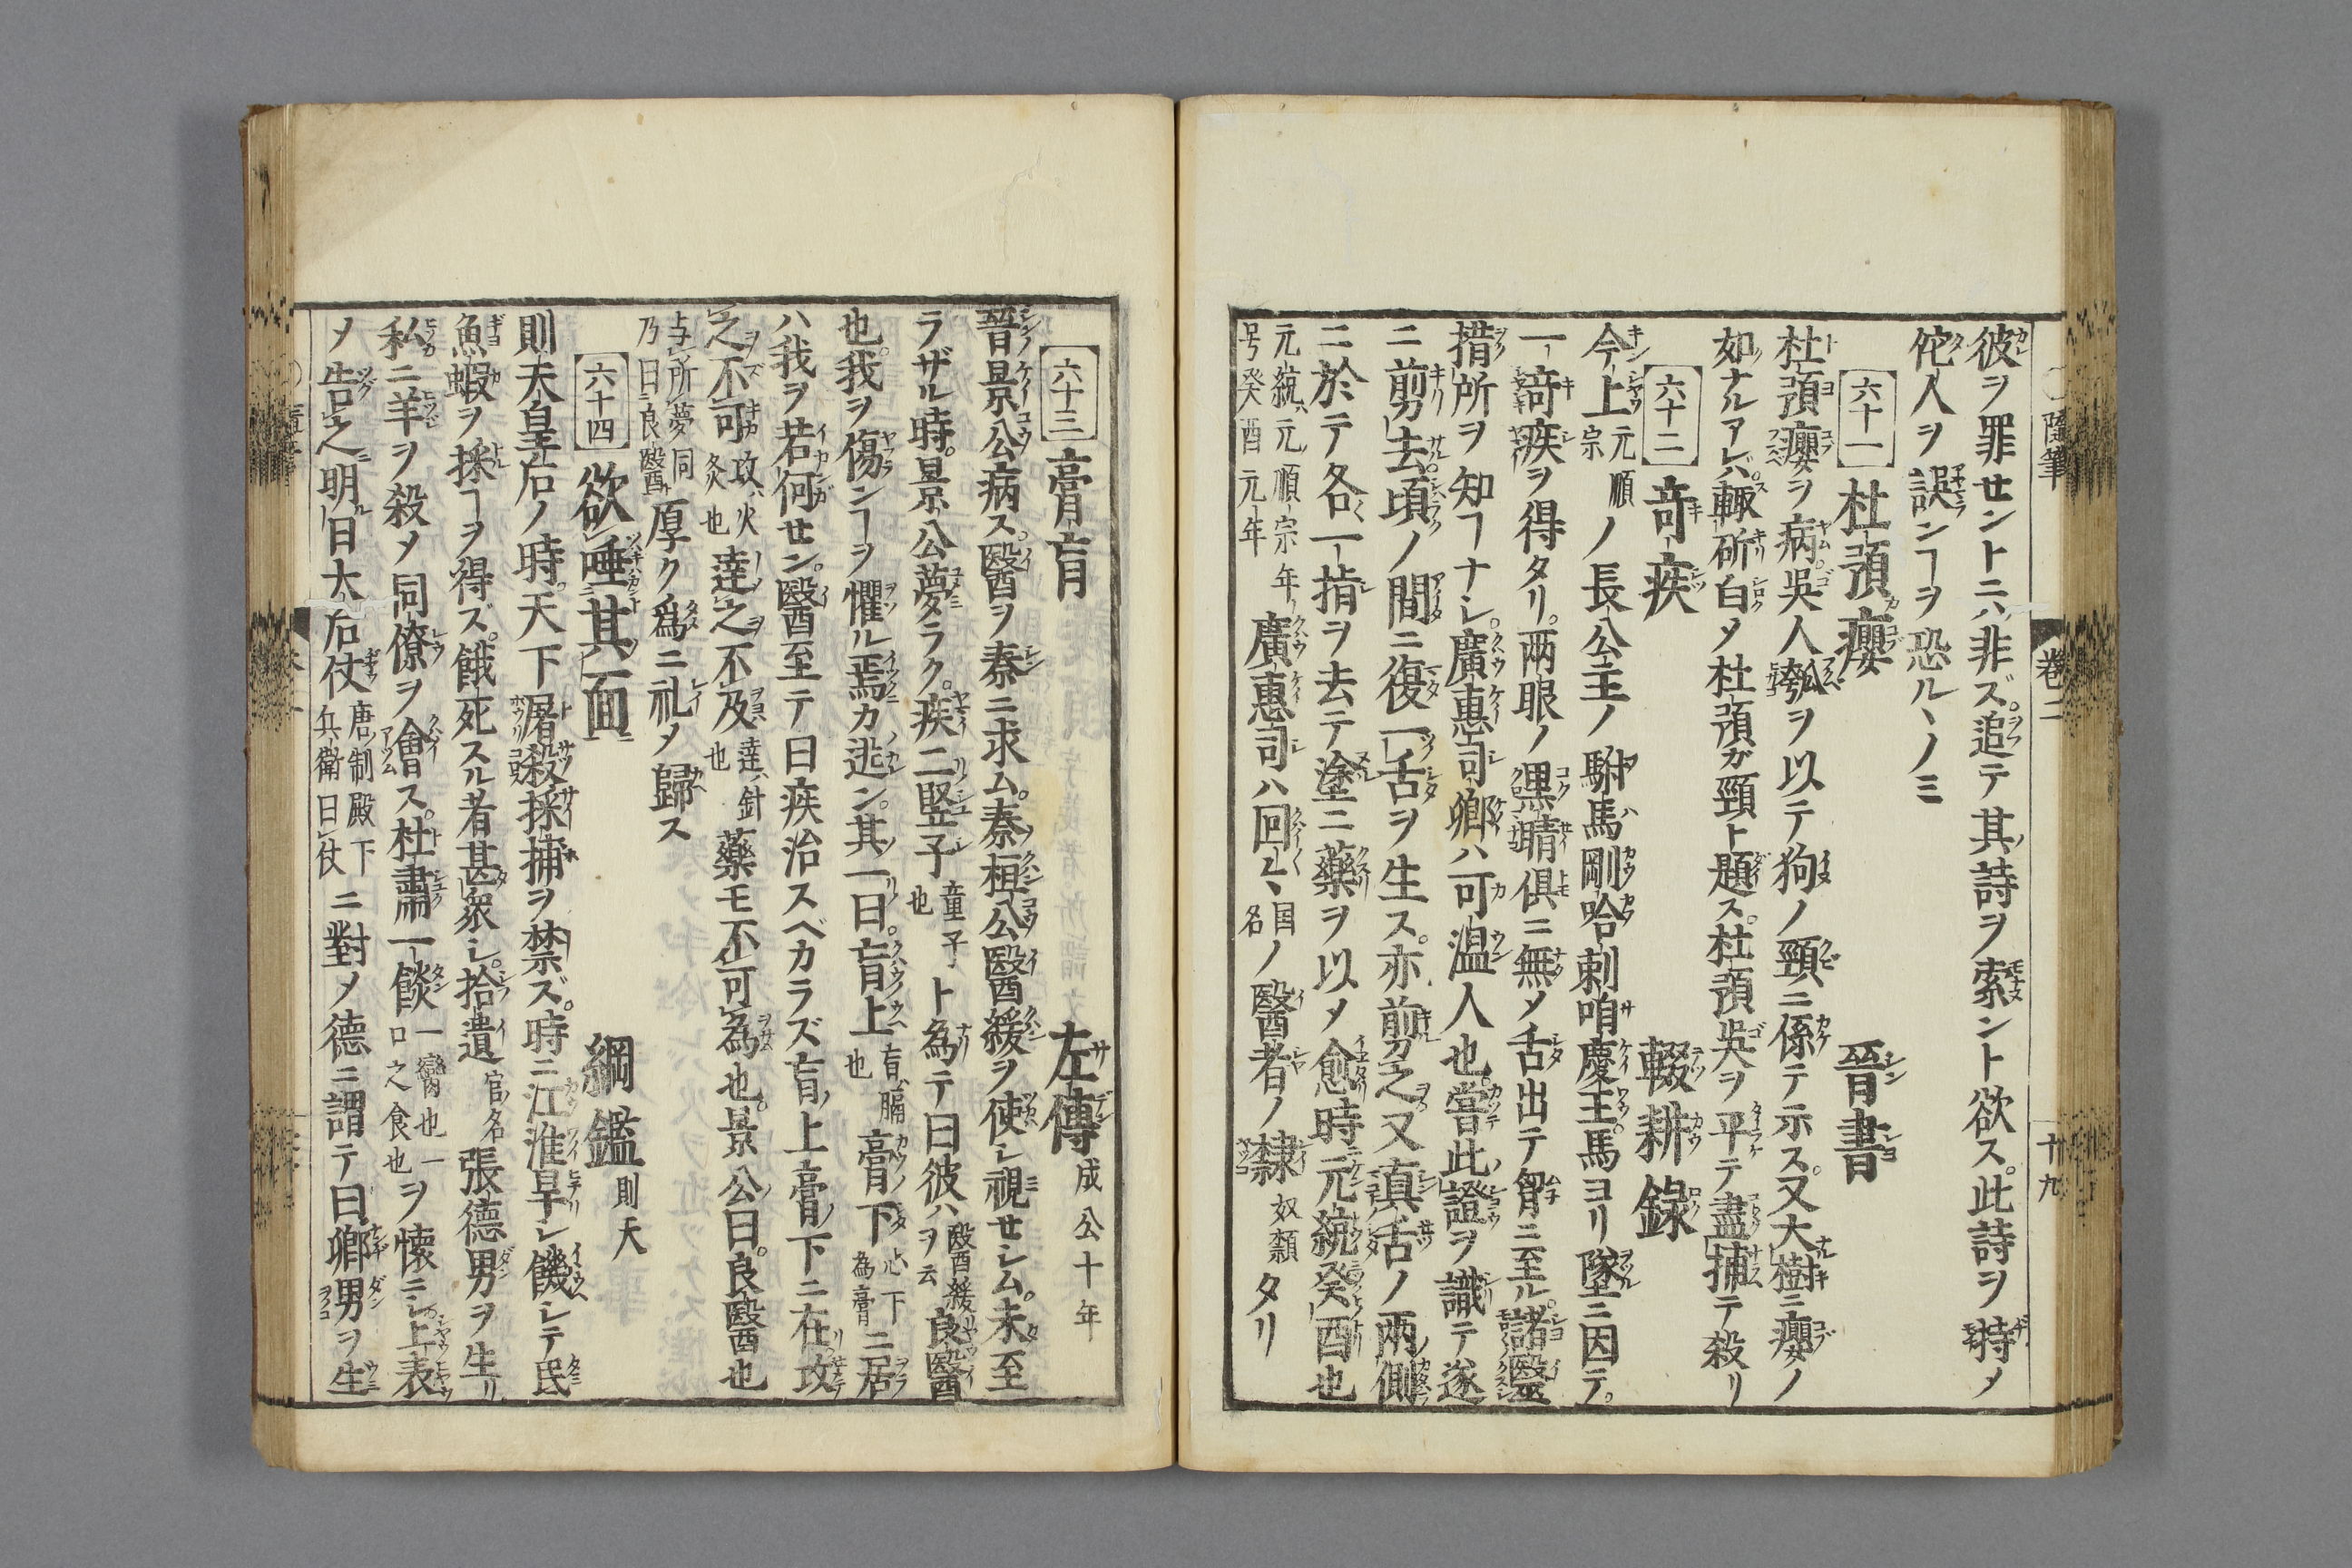 隨筆 卷二 十九
彼ヲ罪セントニハ非ズ。追テ其詩ヲ索ント欲ス。此詩ヲ持メ
佗人ヲ誤ンヿヲ恐ル丶ノミ
六十一 杜預癭 晉書
杜預癭ヲ病。吳人瓠ヲ以テ狗ノ頸ニ係テ示ス。又大樹ニ癭ノ
如ナルアレバ。輙斫白メ杜預ガ頸ト題ス。杜預吳ヲ平テ盡捕テ殺リ
六十二 竒疾 輟耕錄
今上元順宗ノ長公主ノ駙馬剛哈剌咱慶王。馬ヨリ墜ニ因テ。
一竒疾ヲ得タリ。兩眼ノ黒睛俱ニ無メ舌出テ胷ニ至ル。諸醫
措所ヲ知ヿナシ。廣惠司卿ハ可温人也。嘗此證ヲ識テ遂
ニ剪去。頃ノ間ニ復一舌ヲ生ス。亦剪之又真舌ノ兩側
ニ於テ各一指ヲ去テ塗ニ藥ヲ以メ愈。時元統癸酉也
元統ハ元順宗年号癸酉元年 廣惠司ハ回々国名ノ醫者ノ隸奴類タリ
六十三 膏肓 左傳 成公十年
晉景公病ス。醫ヲ秦ニ求ム。秦桓公醫緩ヲ使シ視セシム。未至
ラザル時。景公夢ラク。疾二竪子童子也ト為テ曰彼ハ醫緩ヲ云良醫
也。我ヲ傷ンヿヲ懼ル。焉カ逃ン。其一曰。肓上肓ハ膈也膏下心下為膏ニ居
ハ我ヲ若何セン。醫至テ曰疾治スベカラズ肓ノ上膏ノ下ニ在。攻
之不可攻ハ火灸也達之不及達ハ針也藥モ不可為也。景公曰。良醫也
与所夢同乃曰良醫ト厚ク為ニ礼メ歸ス
六十四 欲唾其面 綱鑑 則天
則天皇后ノ時。天下屠殺採捕ヲ禁ズ。時ニ江淮旱シ饑シテ民
魚蝦ヲ採ヿヲ得ズ。餓死スル者甚衆シ。拾遺官名張德男ヲ生リ
私ニ羊ヲ殺メ同僚ヲ會ス。杜肅一餤一臠也一口之食也ヲ懷ニシ。上表
メ告之。明日太后仗唐ノ制殿下兵衛曰仗ニ對メ德ニ謂テ曰。卿男ヲ生